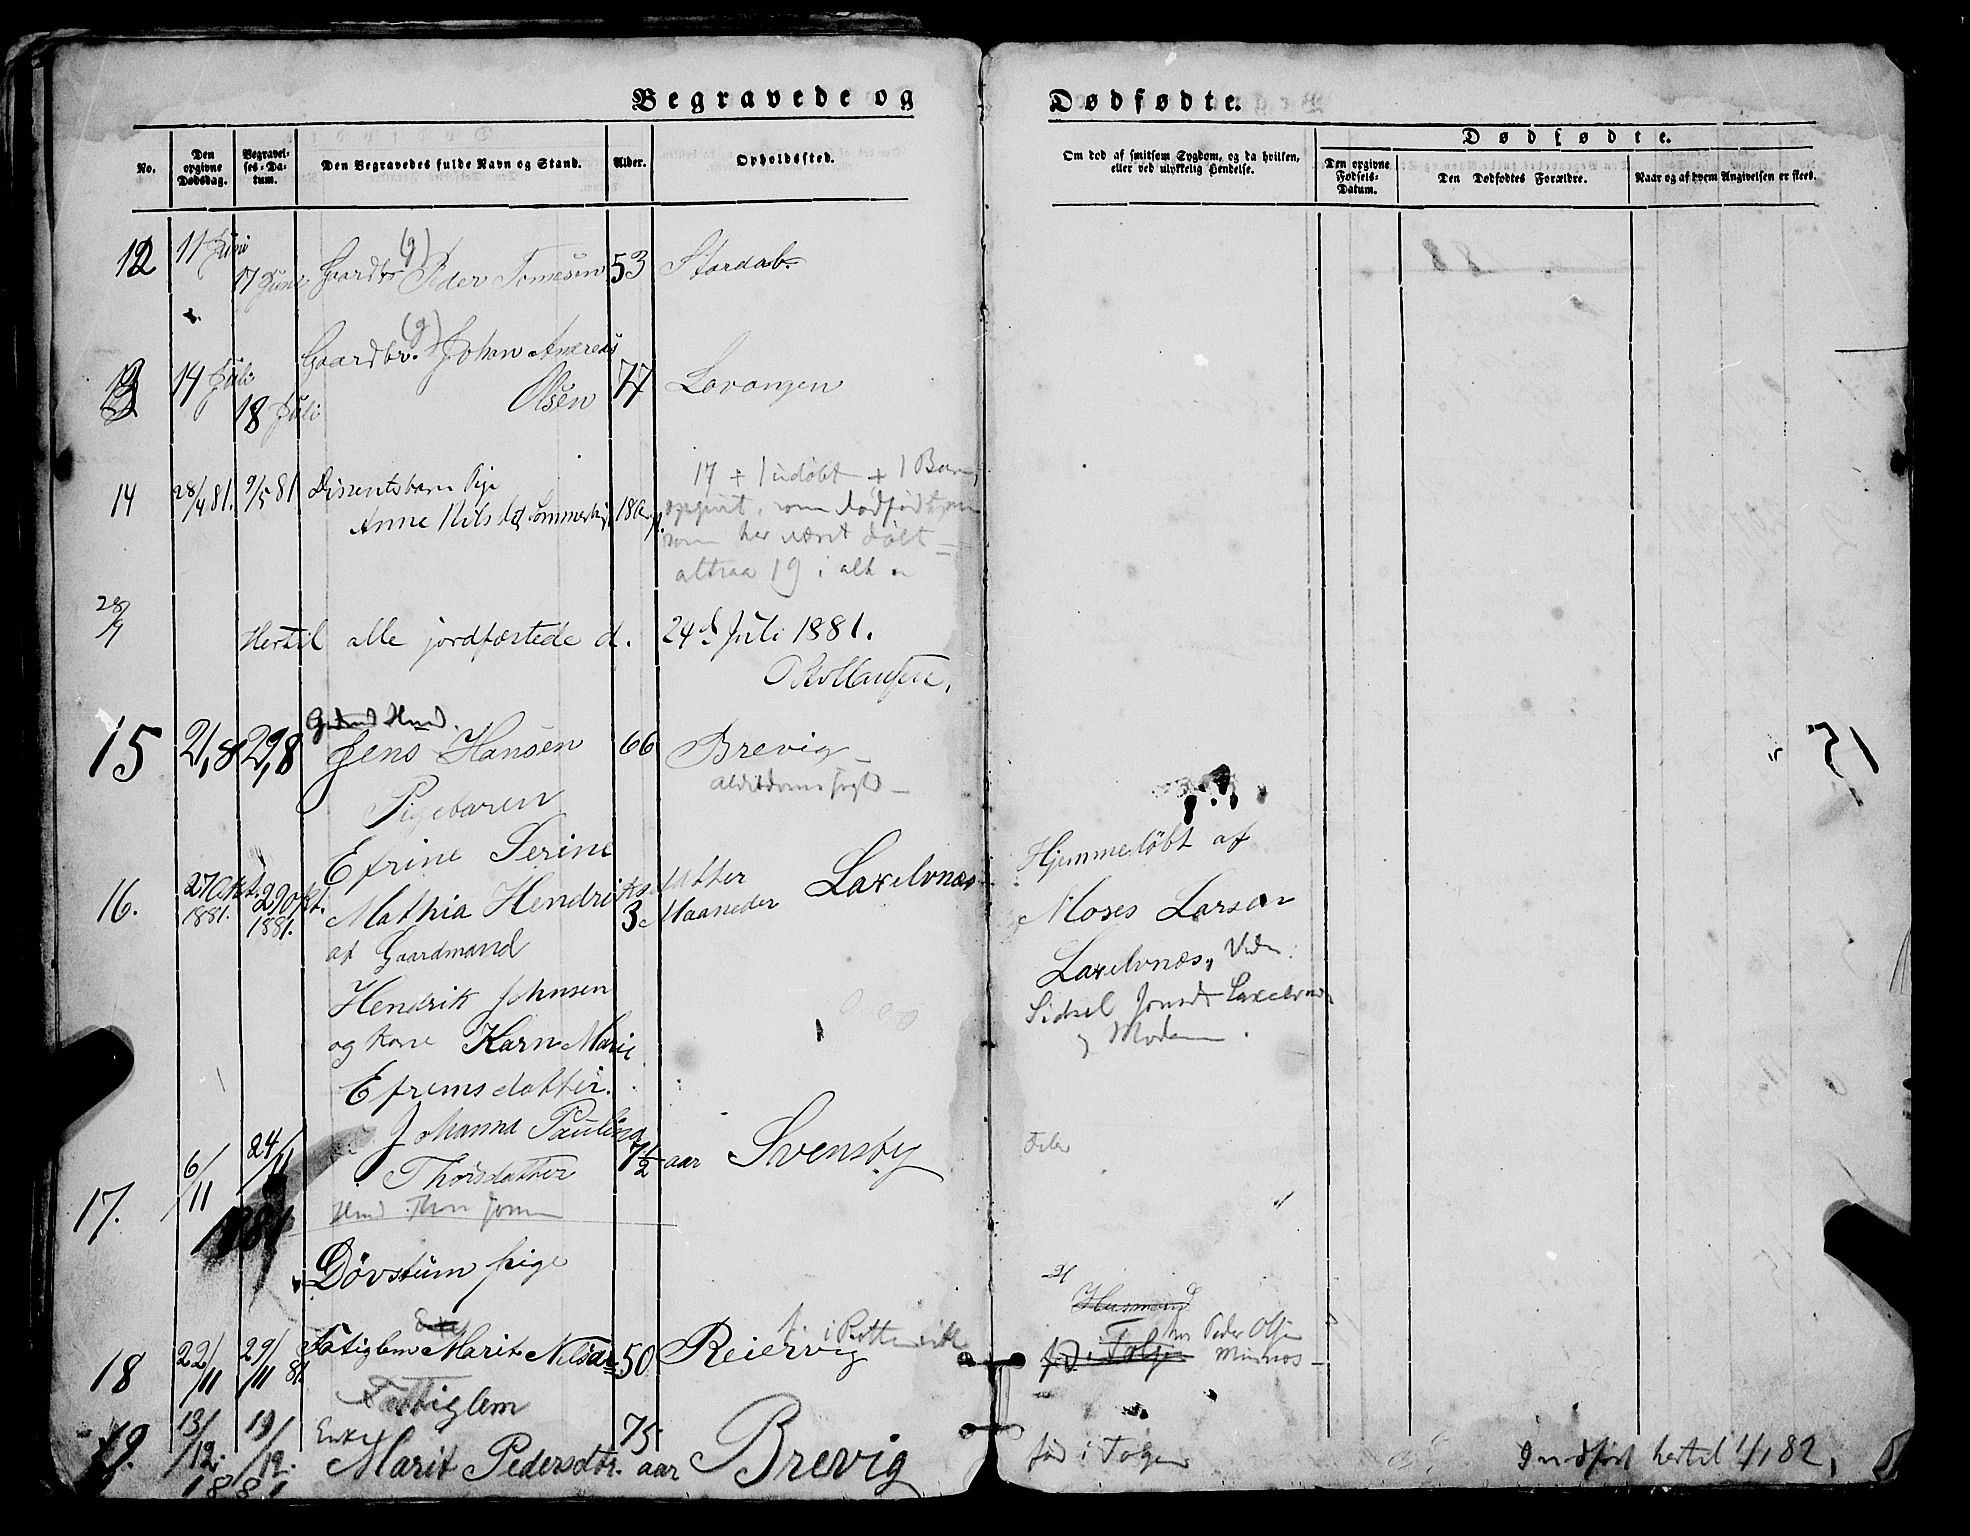 Begravede og
Dødfødte.
No.
Den opgivne Dødsdag.
Begravelses-Datum.
Den Begravedes fulde Navn og Stand.
Alder.
Opholdssted.
Om død af smitsom Sygdom, og da hvilken, eller ved ulykkelig Hendelse.
Dødfødte.
Den opgivne Fødsels-Datum.
Den Dødfødtes Forældre.
Naar og af hvem Angivelsen er skeet.
12 11 Juni
17 Juni Gaardbr (g) Peder Tomesen 53 Stordal
13 14 Juli Gaardbr. (g) Johan Andreas
18 Juli Olsen 77 Lavangen
14 28/4 81. 9/5 81 Dissenterbarn Pige
Anne Nils
17 + 1 udøbt + 1 Barn
opgivet, som dødfødt, men
som har været døbt
altsaa 19 i alt
28/9
Hertil alle jordfæstede d. 24d Juli 1881.
Gaardmd Hmd.
15 21,8 29,8 Jens Hansen 66 Brevig
Alderdoms
Pigebaren
Efrine Serine
16. 27 Okt. 1881. 29 Okt. 1881. Mathia Hendriksdatter 3 Maaneder Laxelvnæs
af Gaardmand
Hendrik Johnsen
og Kone Karn Marie
Efremsdatter.
Hjemmedøbt af
Moses Larsen
Laxelvnæs, Vidn:
Sidsel Jonsdr Laxelvnæs
og Moderen.
17. 6/11 24/11 1881 Johanna Paulina
Thorsdatter 7½ aar Svensby
Hmd Thor
Feber
Døvstum pige
18 22/11 29/11 81. Fatiglem Marit Nilsdr 50 Reiervig
Husmand
hos Peder Olsen
fød i Tolgen
Fattiglem
19. 13/12. 19/12. Enke
Marit Pedersdtr. 75 aar Brevig
1881
fød i Tolgen
Indført hertil 1/1 82,
15